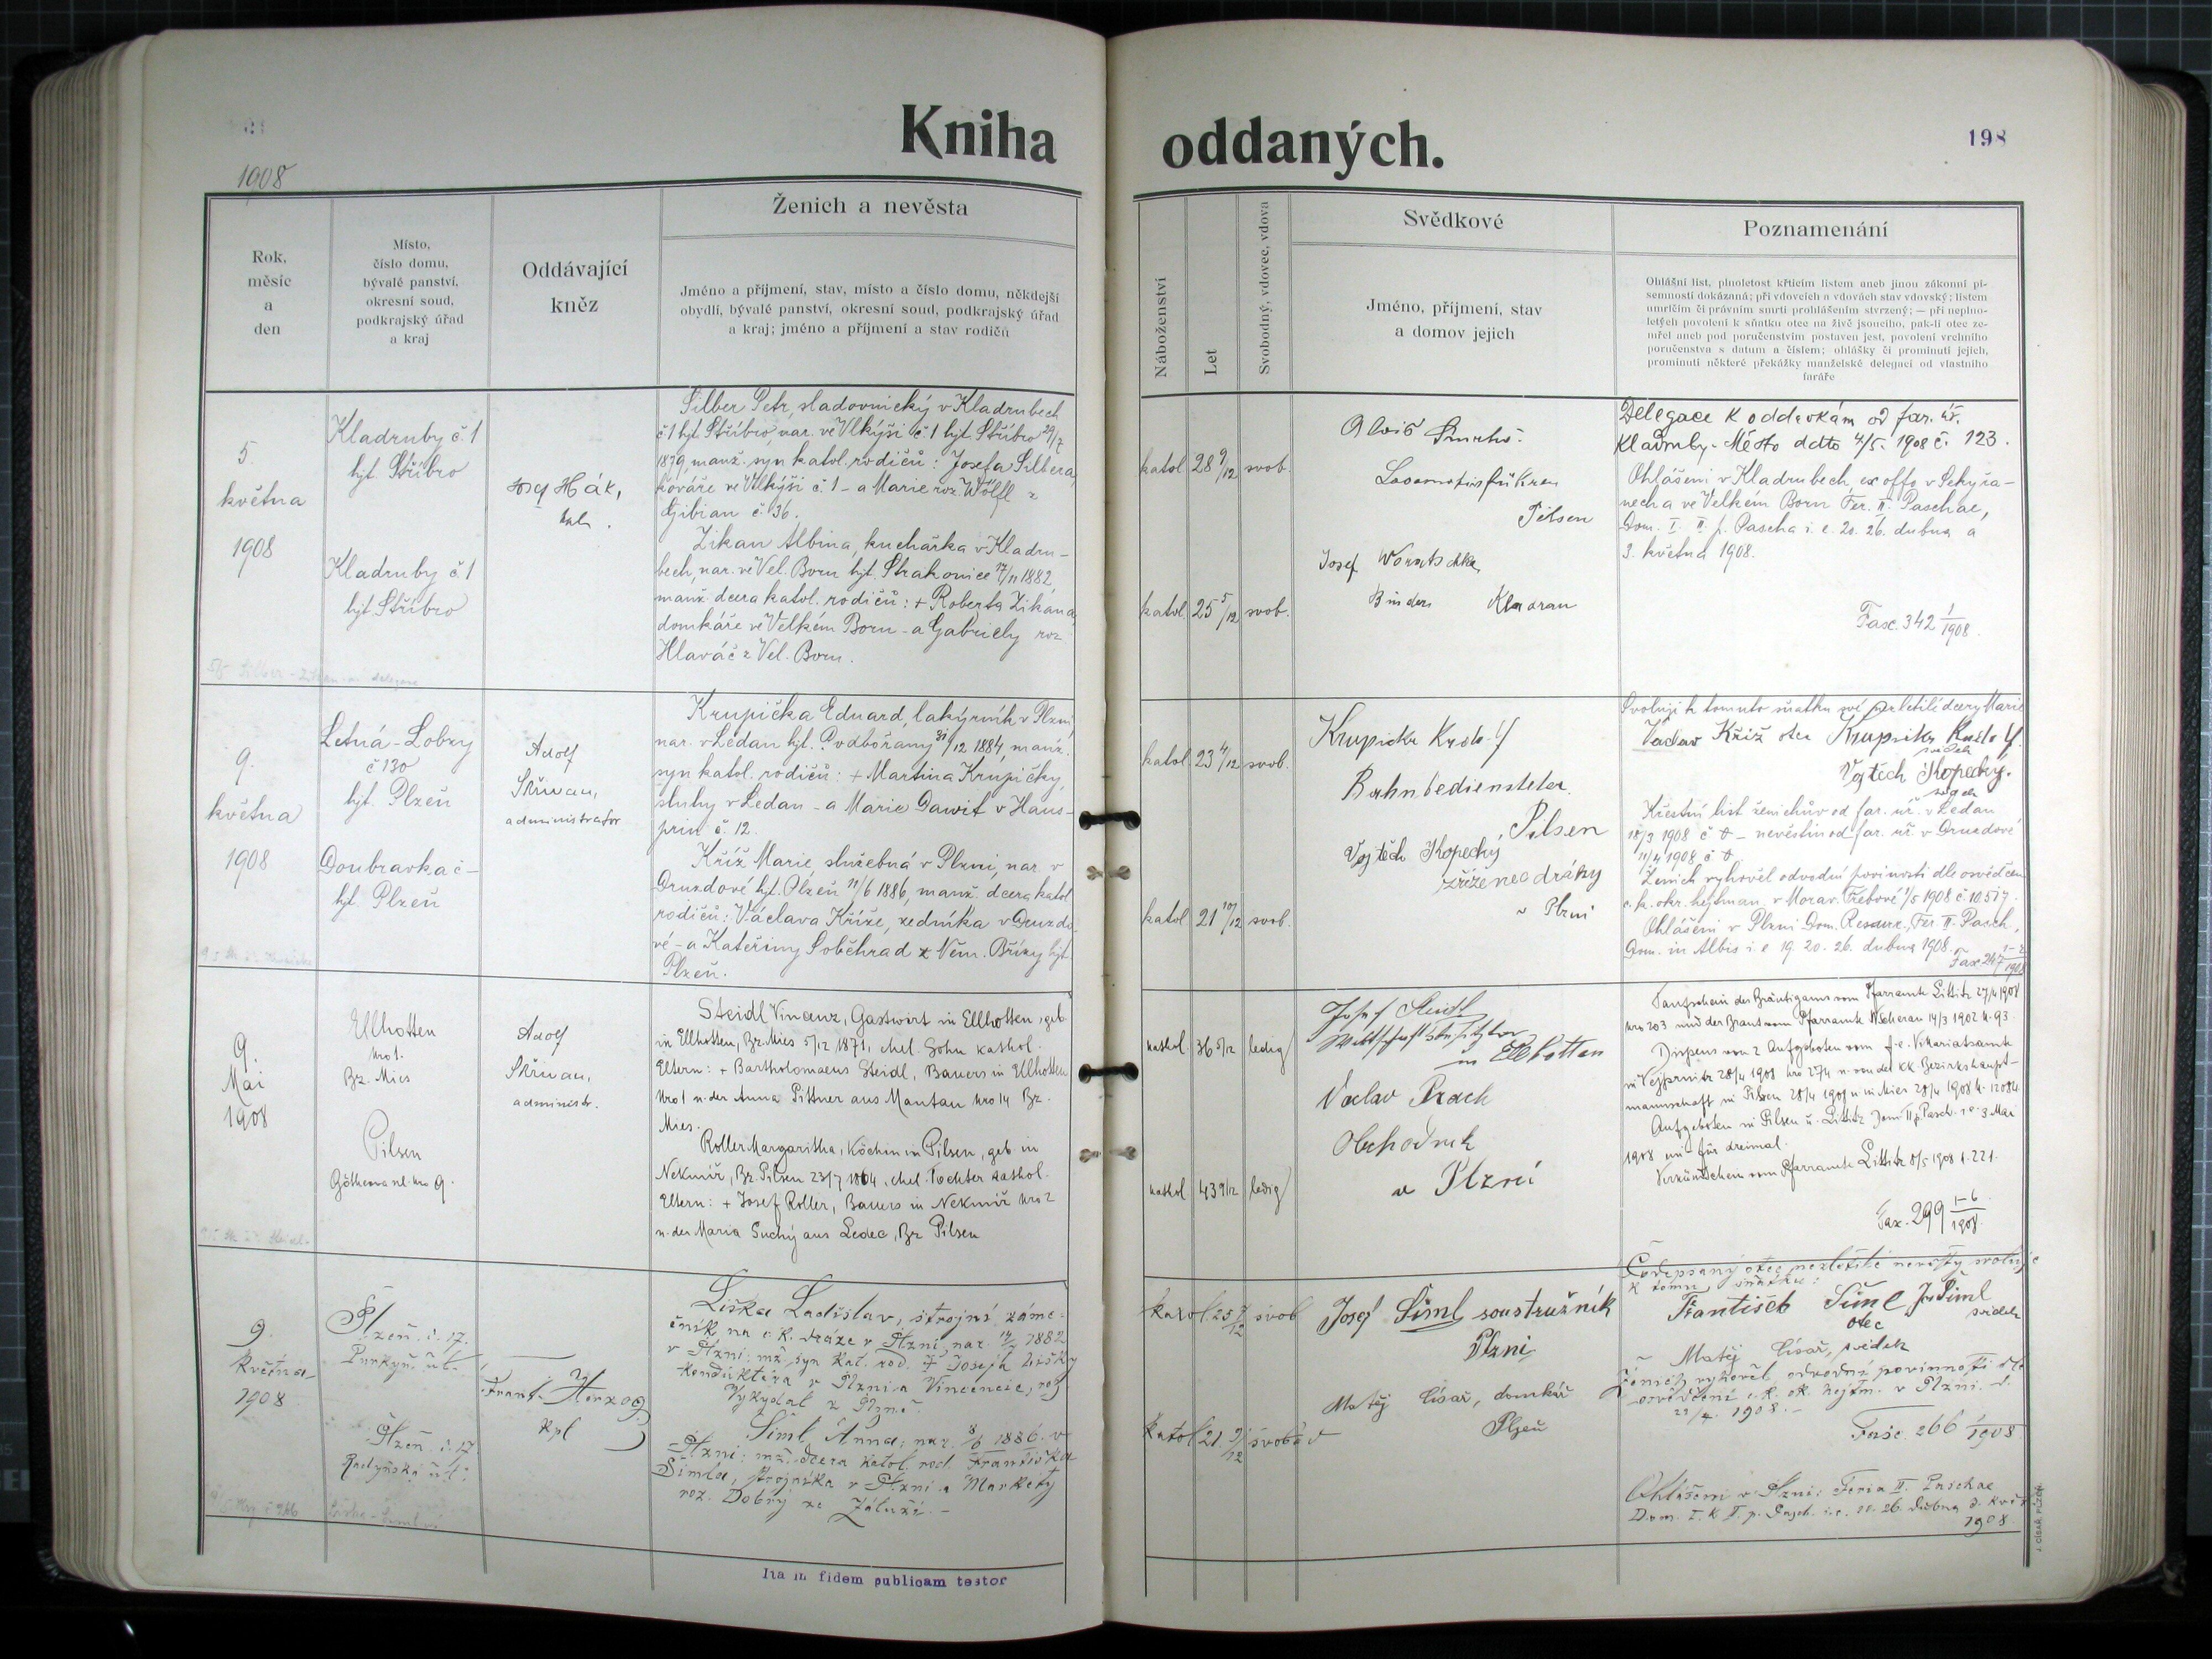 Kniha oddaných.
198
1908
Rok,
měsíc
a
den
Místo,
číslo domu,
bývalé panství,
okresní soud,
podkrajský úřad
a kraj
Oddávající
kněz
Ženich a nevěsta
Jméno a příjmení, stav, místo a číslo domu, někdejší
obydlí, bývalé panství, okresní soud, podkrajský úřad
a kraj; jméno a příjmení a stav rodičů
Náboženství
Let
Svobodný, vdovec, vdova
Svědkové
Jméno, příjmení, stav
a domov jejich
Poznamenání
Ohlášní list, plnoletost křticím listem aneb jinou zákonní pí-
semností dokázaná; při vdovcích a vdovách stav vdovský; listem
umrlčím či právním smrti prohlášením stvrzený; — při neplno-
letých povolení k sňatku otce na živě jsoucího, pak-li otec ze-
mřel aneb pod poručenstvím postaven jest, povolení vrchního
poručenstva s datum a číslem; ohlášky či prominutí jejich,
prominutí některé překážky manželské delegací od vlastního
faráře
5.
května
1908
Kladruby č. 1
hjt. Stříbro
Kladruby č. 1
hjt. Stříbro
Josef Hák,
Silber Petr, sladovnický v Kladrubech
č 1 hjt. Stříbro, nar. ve Vlkýši č. 1 hjt. Stříbro 29/7
1879, manž. syn katol. rodičů: Josefa Silbera,
kováře ve Vlkýši č. 1 - a Marie roz. Wölfl z
Gibian č. 36.
Zikan Albina, kuchařka v Kladru-
bech, nar. ve Vel. Boru hjt. Strakonice 17/11 1882,
manž. dcera katol. rodičů: + Roberta Zikána,
domkáře ve Velkém Boru - a Gabriely roz.
Hlaváč z Vel. Boru.
katol. 28 9/12 svob.
katol. 25 5/12 svob.
Alois
Pilsen
Josef
Binder Kladrau
Delegace k oddavkám od far. úř.
Kladruby - Město ddto 4/5. 1908 č. 123.
Ohlášeni v Kladrubech, ex offo v Sekyřa-
nech a ve Velkém Boru Fer. II. Paschae,
Dom. I. II. p. Pascha i. e. 20. 26. dubna a
3. května 1908.
Fasc. 342 1/1908.
9.
května
1908
Letná - Lobzy
č 130
hjt. Plzeň
Doubravka č -
hjt. Plzeň
Adolf
administrator
Krupička Eduard, lakýrník v Plzni,
nar. v Ledau hjt. Podbořany 31/12 1884, manž.
syn katol. rodičů: + Martina Krupičky,
sluhy v Ledau - a Marie Dawit v Haus-
prin č. 12.
Kříž Marie, služebná v Plzni, nar. v
Druzdové hjt. Plzeň 11/6 1886, manž. dcera katol.
rodičů: Václava Kříže, zedníka v Druzdo-
vé - a Kateřiny Soběhrad z Něm. Břízy hjt.
Plzeň.
katol. 23 4/12 svob.
katol. 21 10/12 svob.
Krupička
Bahnbediensteter.
Pilsen
Vojtěch Kopecký
zřízenec dráhy
v Plzni
Svoluji k tomuto sňatku své nezletilé dcery Marie
Václav Kříž otec
svědek
Vojtěch Kopecký.
svědek
Křestní list ženichův od far. úř. v Ledau
18/3 1908 č - nevěstin od far. úř. v Druzdové
11/4 1908 č
Ženich vyhověl odvodní povinnosti dle osvědčení
c. k. okr. hejtman. v Morav. Třebové 1/5 1908 č 10.517.
Ohlášeni v Plzni Dom. Resurr., Fer. II. Pasch.,
Dom. in Albis i. e. 19. 20. 26. dubna 1908.
Fasc 247 1-2/1908
9.
Mai
1908
Ellhotten
Nro 1.
Bz. Mies
Pilsen
Nro 9.
Adolf
administr.
Steidl Vincenz, Gastwirt in Ellhotten, geb.
in Ellhotten, Bz. Mies 5/12 1871, ehel. Sohn kathol.
Eltern: + Bartholomaeus Steidl, Bauers in Ellhotten
Nro 1 u. der Anna Pittner aus Mantau Nro 14 Bz.
Mies.
Roller Margaritha, Köchin in Pilsen, geb. in
Nekmíř, Bz. Pilsen 23/7 1864, ehel. Tochter kathol.
Eltern: + Josef Roller, Bauers in Nekmíř Nro 2
u. der Maria Suchý aus Ledec, Bz Pilsen
kathol. 36 5/12 ledig
kathol. 43 9/12 ledig
Josef Steidl
Wirtschaftsbesitzer
in Ellhotten
Václav
Obchodník
v Plzni
Taufschein des Bräutigams vom Pfarramte Littitz 27/4 1908
Nro 203 und der Braut vom Pfarramte Wscherau 14/3 1902 N. 93.
Dispens von 2 Aufgeboten vom f. e. Vikariatsamte
in Vejprnitz 28/4 1908 Nro 274 u. von der k.k. Bezirkshaupt-
mannschaft in Pilsen 28/4 1908 u. in Mies 28/4 1908 N. 12084.
Aufgeboten in Pilsen u. Littitz Dom II p. Pasch. i. e. 3 Mai
1908 für dreimal.
Verkündschein vom Pfarramte Littitz 8/5 1908 N. 221.
Fasc. 299 1-6/1908.
9.
května
1908
Plzeň. č. 17.
Purkyň. ul.
Plzeň. č. 17.
Radyňská ul.
Frant. Herzog
kpl
Liška Ladislav, strojní záme-
čník na c. k. dráze v Plzni, nar. 1882
v Plzni: mž. syn kat. rod. + Josefa Lišky
konduktéra v Plzni a Vincencie, roz.
Vykydal z Plzně.
Šiml Anna; nar. 8/8 1886. v
Plzni: mž. dcera katol. rod. Františka
Šimla, strojníka v Plzni a Markéty
roz. Dobrý ze Záluží. -
katol. 25 7/12 svob
katol. 21. 9/12 svob
Josef Šiml soustružník
Plzni
Matěj Císař, domkář
Plzeň
Podepsaný otec nezletilé nevěsty svoluje
k tomu sňatku:
František Šiml Jos Šiml
otec svědek
Matěj Císař, svědek
Ženich vyhověl odvodní povinnosti dle
osvědčení c. k. ok. hejtm. v Plzni. d.
1908. -
Fasc. 266 1/1908.
Ohlášeni v Plzni: Feria II. Paschae
Dom. I. & II. p. Pasch. i. e. 20. 26. dubna 3. květ
1908.
Ita in fidem publicam testor
J. CÍSAŘ, PLZEŇ.